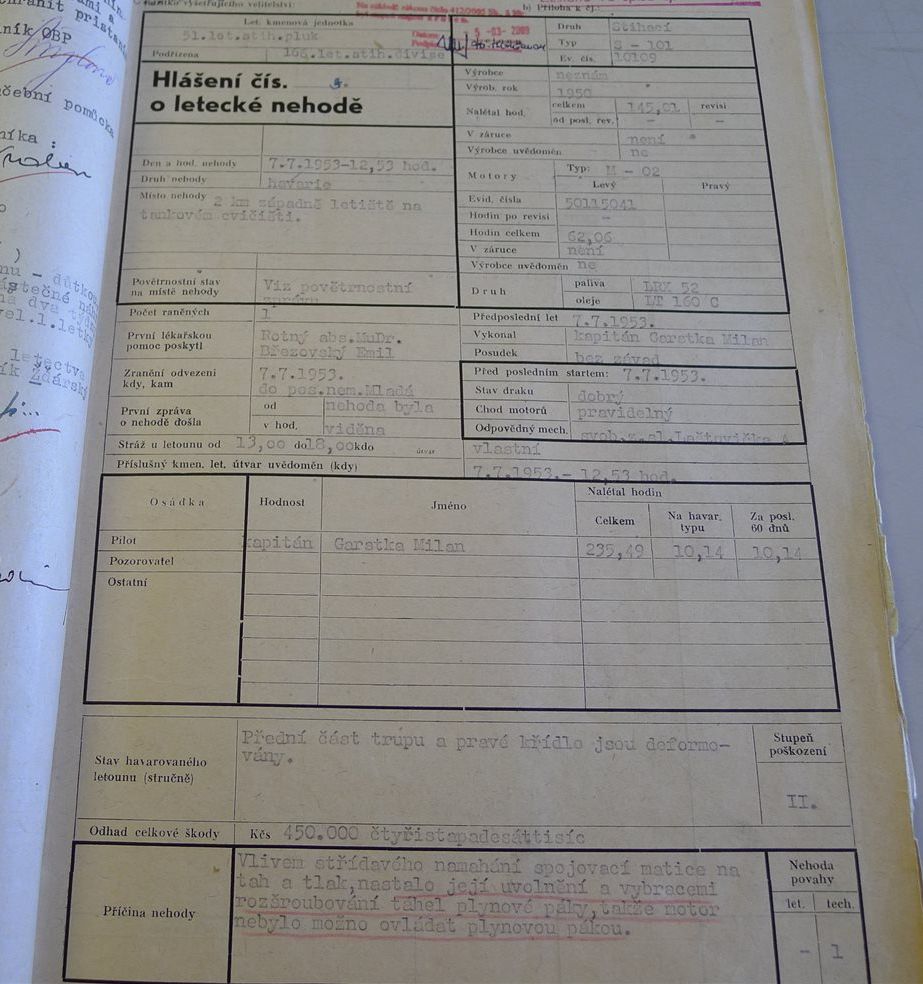 Let. kmenová jednotka
51.let.stih.pluk
Podřízena 166.let.stih.divise
15 -03- 2009
Druh Stíhací
Typ S - 101
Ev. čís. 10109
Hlášení čís.
o letecké nehodě
Výrobce neznám
Výrob. rok 1950
Nalétal hod. celkem 145,01 revisi
od posl. rev. - -
V záruce není
Výrobce uvědoměn ne
Den a hod. nehody 7.7.1953-12,53 hod.
Druh nehody havarie
Místo nehody 2 km západně letiště na
tankovém cvičišti.
Motory Typ: M - 02
Levý Pravý
Evid. čísla 50115041
Hodin po revisi -
Hodin celkem 62,06
V záruce není
Výrobce uvědoměn ne
Druh paliva LRX 52
oleje LT 160 C
Povětrnostní stav
na místě nehody Viz povětrnostní
zprávu
Počet raněných 1
První lékařskou
pomoc poskytl Rotný abs.MuDr.
Březovský Emil
Zranění odvezeni
kdy, kam 7.7.1953.
do pos.nem.Mladá
První zpráva
o nehodě došla od nehoda byla
v hod. viděna
Stráž u letounu od 13,00 do 18,00 kdo útvar vlastní
Příslušný kmen. let. útvar uvědoměn (kdy) 7.7.1953.- 12,53 hod.
Předposlední let 7.7.1953.
Vykonal kapitán Garstka Milan
Posudek bez závad
Před posledním startem: 7.7.1953.
Stav draku dobrý
Chod motorů pravidelný
Odpovědný mech. svob.z.sl.Laštovička
Osádka Hodnost Jméno Nalétal hodin
Celkem Na havar. typu Za posl. 60 dnů
Pilot kapitán Garstka Milan 235,49 10,14 10,14
Pozorovatel
Ostatní
Stav havarovaného
letounu (stručně)
Přední část trupu a pravé křídlo jsou deformo-
vány.
Stupeň
poškození
II.
Odhad celkové škody Kčs 450.000 čtyřistapadesáttisíc
Příčina nehody
Vlivem střídavého namahání spojovací matice na
tah a tlak,nastalo její uvolnění a vybracemi
rozšroubování táhel plynové páky,takže motor
nebylo možno ovládat plynovou pákou.
Nehoda
povahy
let. tech.
- 1